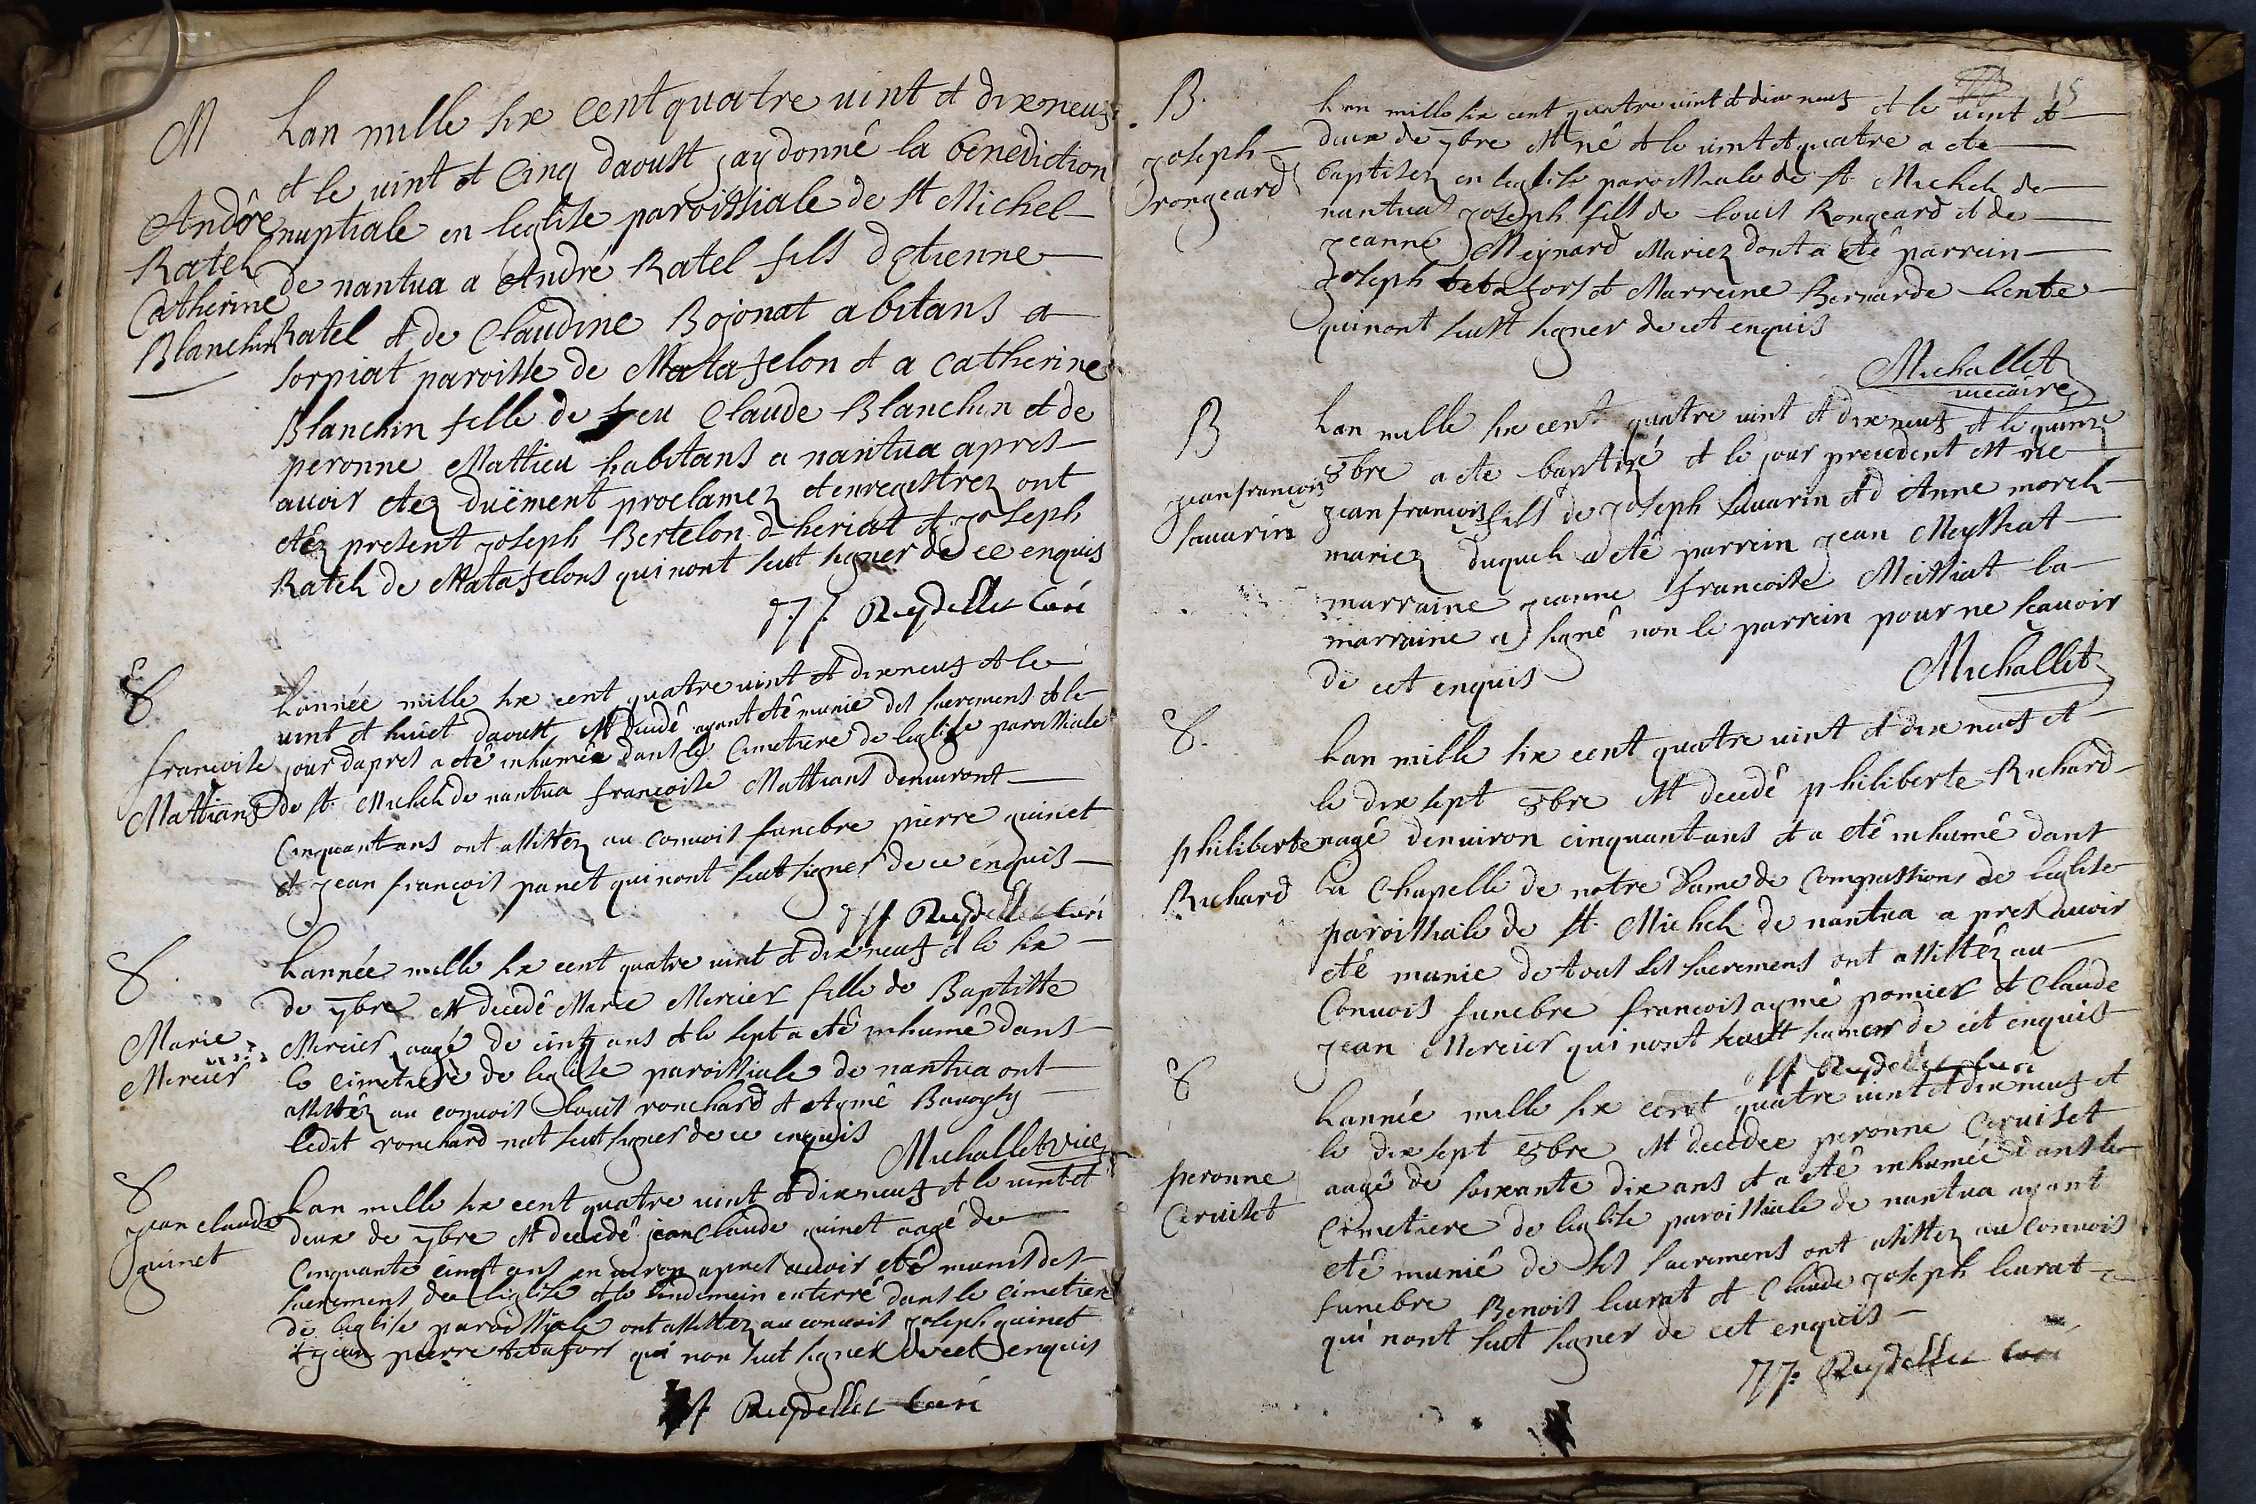 M
André
Ratel
Catherine
Blanchin
Lan mille six cent quatre vint et dixneuf
et le vint et cinq daoust jay donné la benediction
nuptiale en leglise paroissiale de st Michel
de nantua a André Ratel fils detienne
Ratel et de Claudine Bojonat abitans a
sorpiat paroisse de Matafelon et a catherine
Blanchin fille de feu Claude Blanchin et de
peronne Mattieu habitans a nantua apres
avoir etez duëment proclamez et enregistrez ont
etéz present joseph Bertelon d heriat et joseph
Ratel de Matafelons qui nont sceut signer de ce enquis
Reydellet Curé
S
francoise
Mattians
Lannée mille six cent quatre vint et dixneuf et le
vint et huict daoust est decedé ayant eté munie des sacremens et le
jour dapres a eté inhumée dans le Cimetiere de leglise paroissiale
de st Michel de nantua françoise Mattians denuiront
Cinquant ans ont assistez au convois funebre pierre guinet
et jean françois panet qui nont sceut signer de ce enquis
Reydellet Curé
S.
Marie
Mercier
Lannée mille six cent quatre vint et dixneuf et le six
de 7bre est decedé Marie Mercier fille de Baptiste
Mercier aagé de cinq ans et le sept a eté inhumé dans
le cimetiere de leglise paroissiale de nantua ont
assistéz au convois louis ronchard et Aymé
ledit ronchard nat sceut signer de ce enquis
Michallet vice
S
jean claude
guinet
Lan mille six cent quatre vint et dixneuf et le vint et
deux de 7bre est decedé jean Claude guinet aagé de
Cinquante cinq ans environ apres avoir eté munis des
sacremens de leglise et le lendemain enterré dans le cimetiere
de leglise paroissiale ont assistez au convois joseph guinet
et jean pierre tetafort qui non sceut signer de cet enquis
Reydellet Curé
15
B.
joseph
rongeard
Lan mille six cent quatre vint et dix neuf et le vint et
deux de 7bre est né et le vint et quatre a ete
baptisez en leglise paroissiale de st Michel de
nantua joseph fils de louis Rongeard et de
jeanne Meynard Mariez dont a eté parrein
joseph tetafort et Marreine Bernarde lente
qui nont sceut signer de cet enquis
Michallet
viccaire
B
jean françois
savarin
Lan mille six cent quatre vint et dixneuf et le quinze
8bre a ete baptizé et le jour precedent est né
jean françois fils de joseph savarin et d Anne morel
mariez duquel a eté parrein jean Meyssiat
marraine jeanne francoise Meissiat la
marraine a signé non le parrein pour ne scavoir
de cet enquis
Michallet
S.
philiberte
Richard
Lan mille six cent quatre vint et dix neuf et
le dix sept 8bre est decedé philiberte Richard
aagé denuiron cinquant ans et a eté inhumé dans
la Chapelle de notre Dame de Compassions de leglise
paroissiale de st Michel de nantua a pres avoir
eté munie de tous les sacremens ont assistéz au
Convois funebre francois aymé pomier et Claude
jean Mercier qui nont sceut signer de cet enquis
Reydellet Curé
S
peronne
Ceruiset
Lannée mille six cent quatre vint et dix neuf et
le dix sept 8bre est decedee peronne Ceruiset
aagé de soixante dix ans et a eté inhumée dans le
Cimetiere de leglise paroissiale de nantua ayant
eté munié de ses sacremens ont assistez au convois
funebre Benoit leurat et Claude joseph leurat
qui nont sceut signer de cet enquis
Reydellet Curé